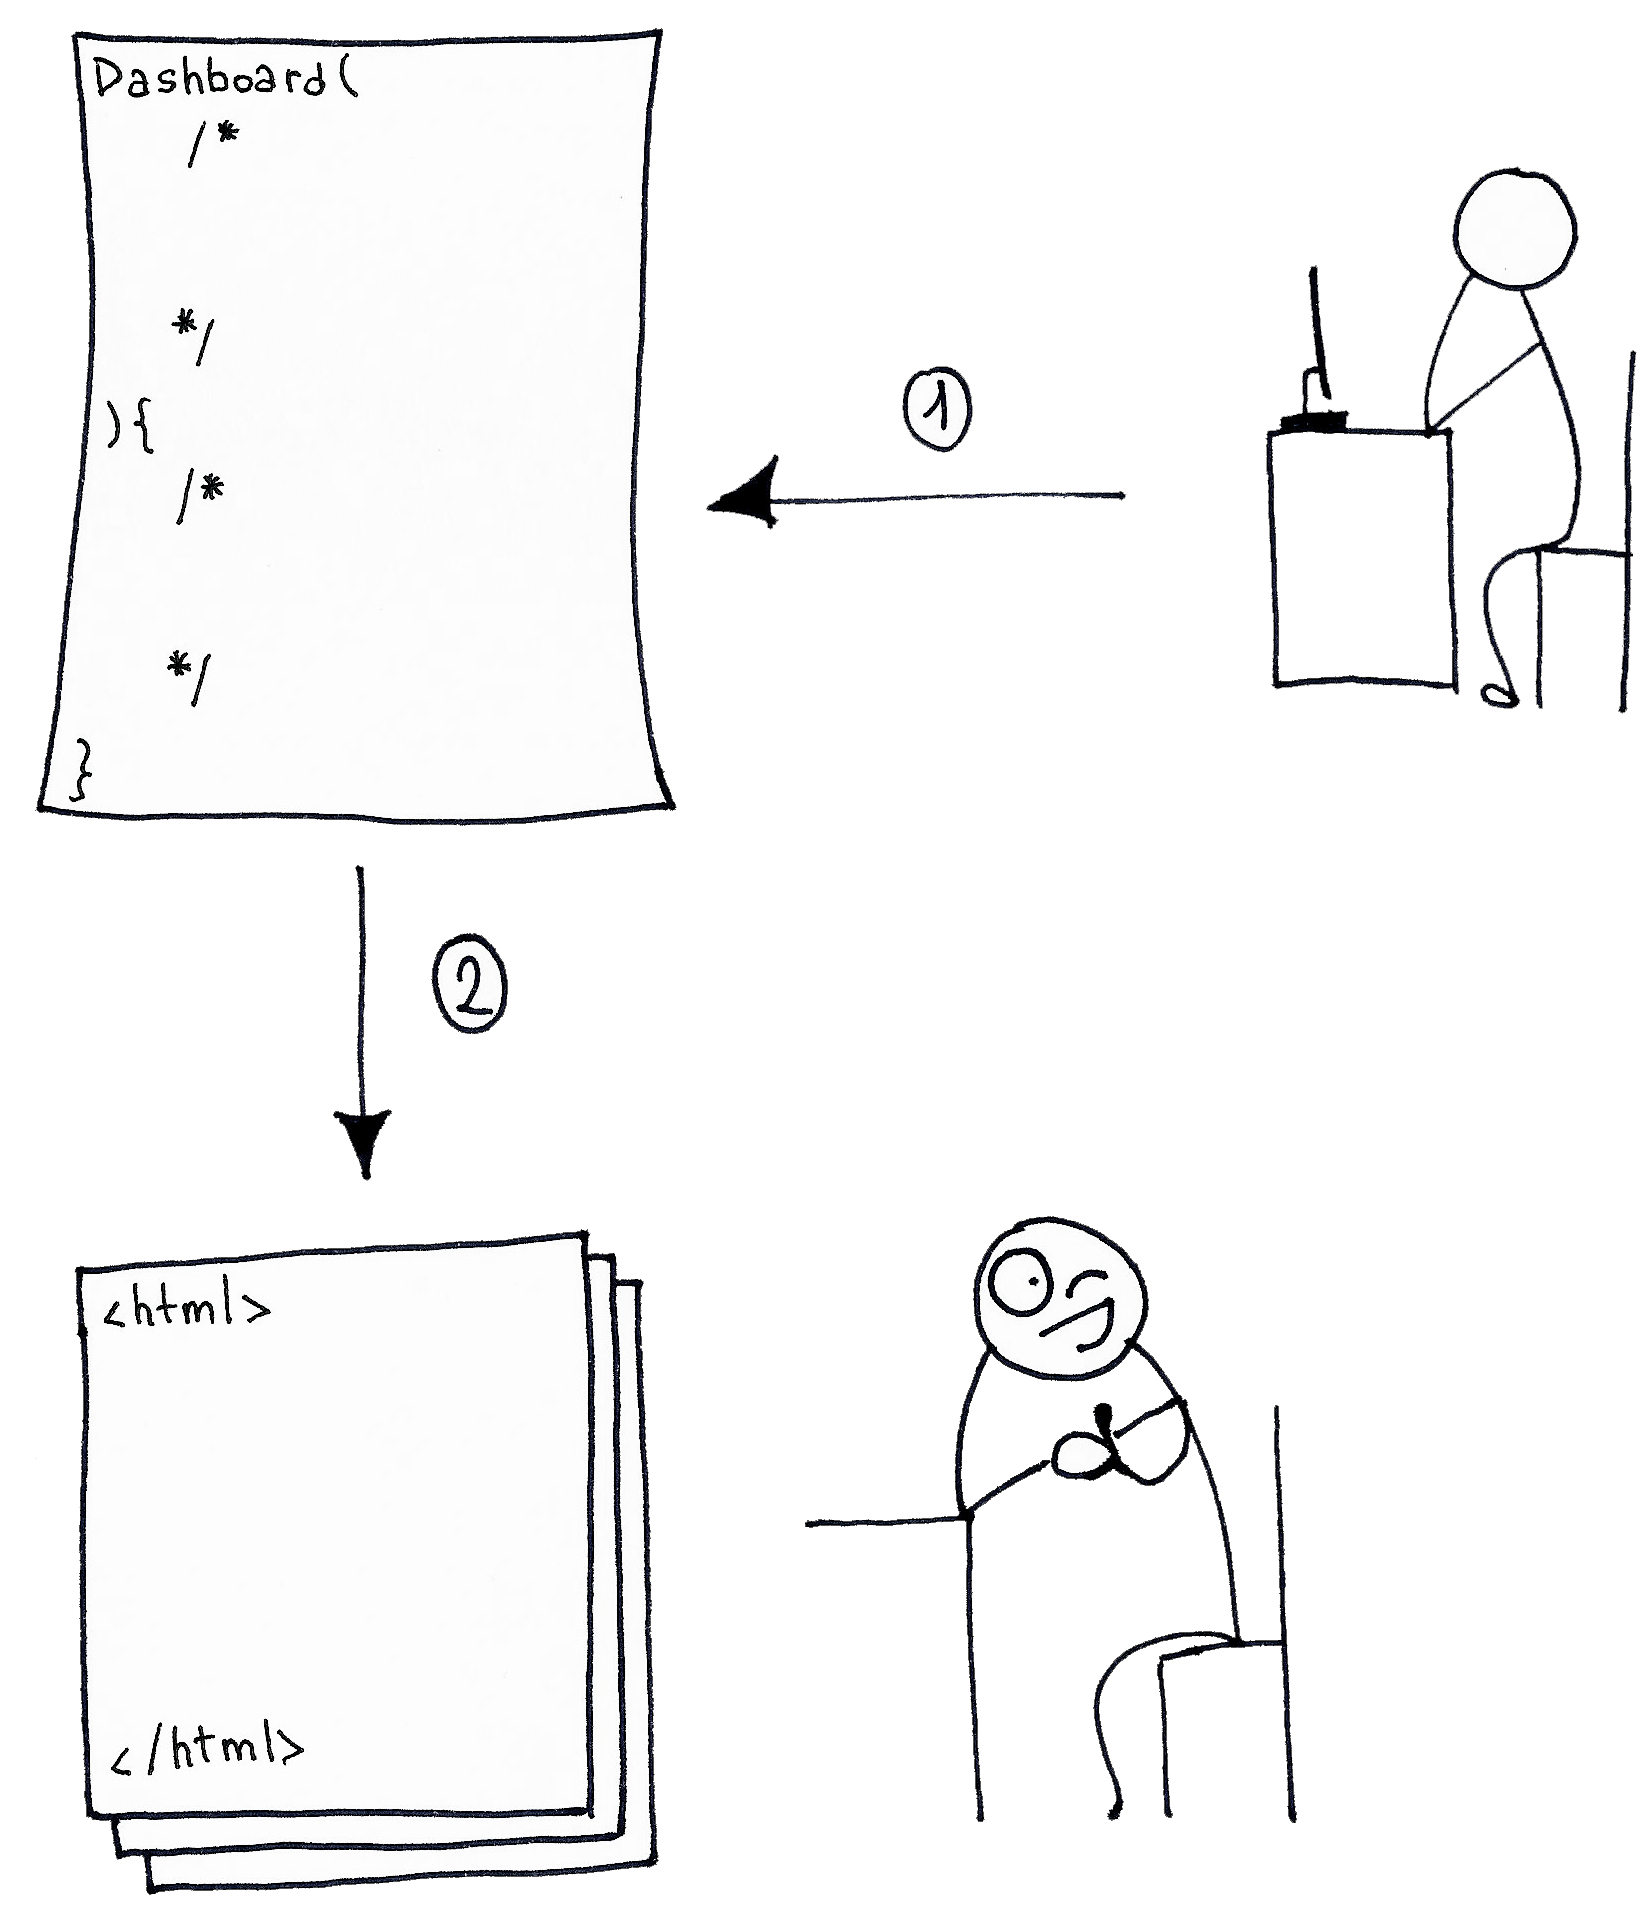 Dashboard(
/*
*/
){
/*
*/
}
1
2
<html>
</html>